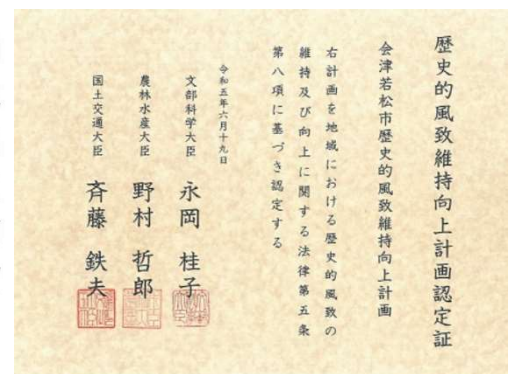 歴史的風致維持向上計画認定証
会津若松市歴史的風致維持向上計画
右計画を地域における歴史的風致の
維持及び向上に関する法律第五条
第八項に基づき認定する
令和五年六月十九日
文部科学大臣 永岡 桂子
農林水産大臣 野村 哲郎
国土交通大臣 斉藤 鉄夫